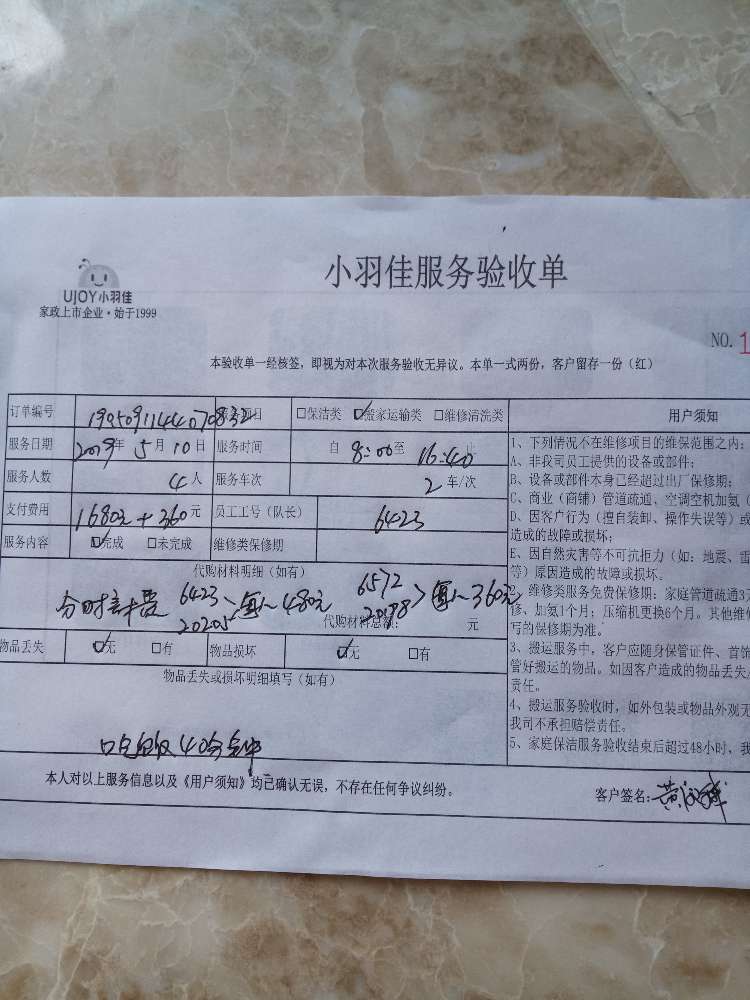 UJOY小羽佳
家政上市企业·始于1999
小羽佳服务验收单
NO.1
本验收单一经核签，即视为对本次服务验收无异议。本单一式两份，客户留存一份（红）
订单编号 服务项目 □保洁类 ☑搬家运输类 □维修清洗类
服务日期 2019年5月10日 服务时间 自 8:00至 16:40止
服务人数 4人 服务车次 2车/次
支付费用 1680元+360元 员工工号（队长） 6423
服务内容 ☑完成 □未完成 维修类保修期
代购材料明细（如有）
6423 20205 每人480元 6572 每人360元
代购材料总额： 元
物品丢失 ☑无 □有 物品损坏 ☑无 □有
物品丢失或损坏明细填写（如有）
40分钟
本人对以上服务信息以及《用户须知》均已确认无误，不存在任何争议纠纷。
客户签名：黄
用户须知
1、下列情况不在维修项目的维保范围之内：
A、非我司员工提供的设备或部件；
B、设备或部件本身已经超过出厂保修期；
C、商业（商铺）管道疏通、空调空机加氨（
D、因客户行为（擅自装卸、操作失误等）或
造成的故障或损坏；
E、因自然灾害等不可抗拒力（如：地震、雷
等）原因造成的故障或损坏。
2、维修类服务免费保修期：家庭管道疏通3
修、加氨1个月；压缩机更换6个月。其他维
写的保修期为准。
3、搬运服务中，客户应随身保管证件、首饰
管好搬运的物品。如因客户造成的物品丢失
责任。
4、搬运服务验收时，如外包装或物品外观无
我司不承担赔偿责任。
5、家庭保洁服务验收结束后超过48小时，我